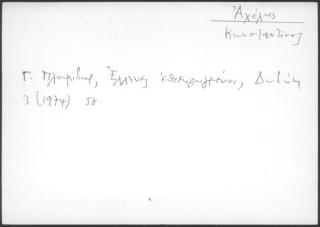 Ἀχέλης
Κωνσταντῖνος
Γ. Πλουμίδης, Ἕλληνες ἐπικηρυγμένοι, Δωδώνη
3 (1974) 58.